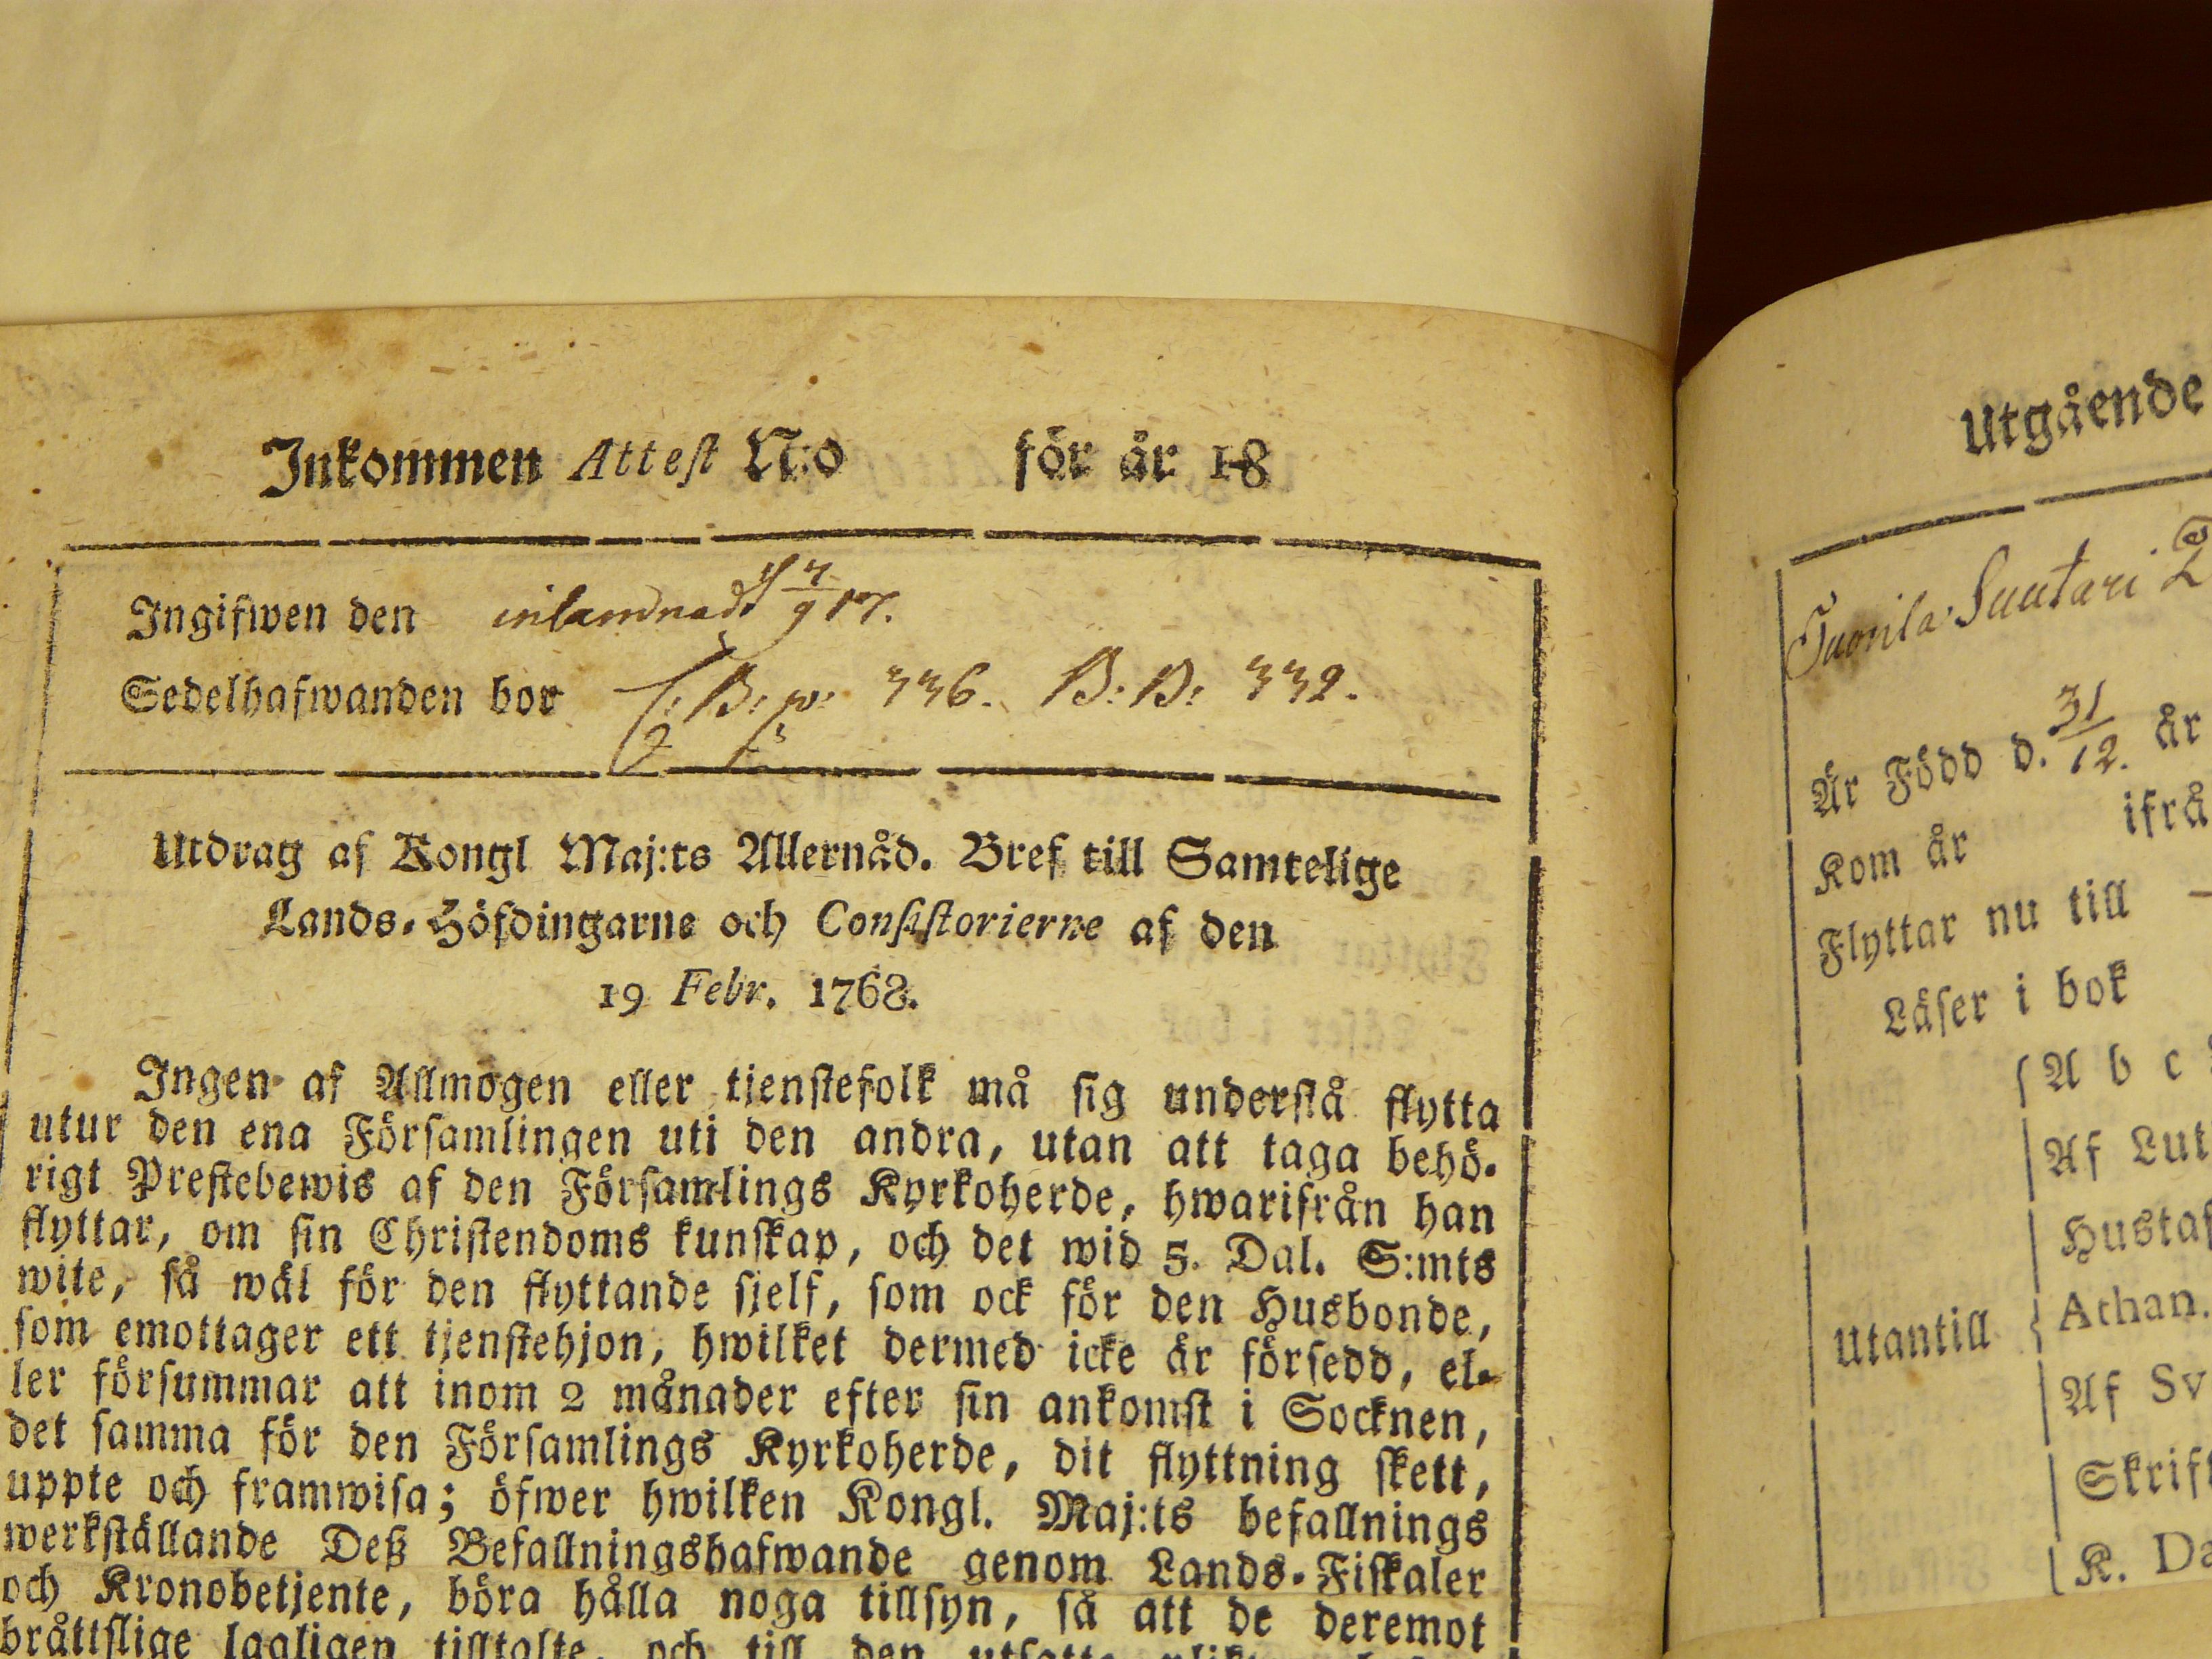 Inkommen Attest N:o för år 18
Ingifwen den inlämnadt d 7/9 17.
Sedelhafwanden bor B: p: 336. B: B: 332.
Utdrag af Kongl Maj:ts Allernåd. Bref till Samtelige
Lands-Höfdingarne och Consistorierne af den
19 Febr. 1768.
Ingen af Allmogen eller tjenstefolk må sig understå flytta
utur den ena Församlingen uti den andra, utan att taga behö-
rigt Prestebewis af den Församlings Kyrkoherde, hwarifrån han
flyttar, om sin Christendoms kunskap, och det wid 5. Dal. S:mts
wite, så wäl för den flyttande sjelf, som ock för den Husbonde,
som emottager ett tjenstehjon, hwilket dermed icke är försedd, el-
ler försummar att inom 2 månader efter sin ankomst i Socknen,
det samma för den Församlings Kyrkoherde, dit flyttning skett,
uppte och framwisa; öfwer hwilken Kongl. Maj:ts befallnings
werkställande Deß Befallningshafwande genom Lands-Fiskaler
och Kronobetjente, böra hålla noga tillsyn, så att de deremot
bråttslige lagligen tilltalte, och till den utsatte
Utgående
Tuorila Suutari
Är Född d. 31/12. år
Kom år ifrå
Flyttar nu till
Läser i bok
A b c
Af Lut
Hustaf
Utantill Athan.
Af Sv
Skrift
K. Da